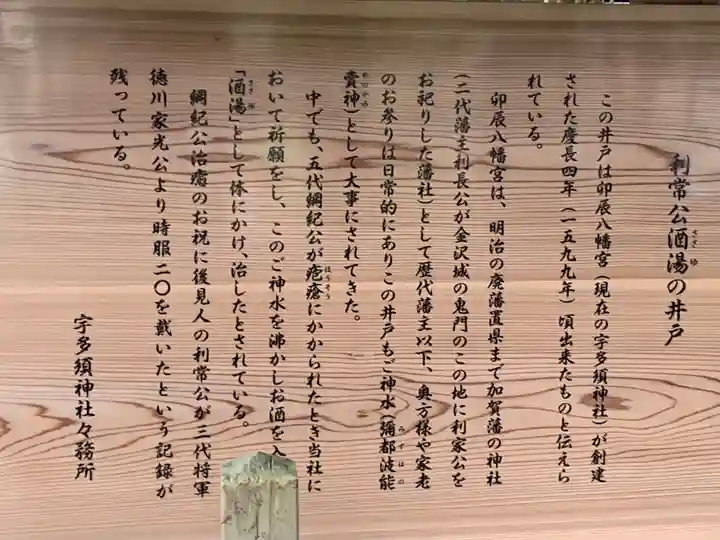 利常公酒湯の井戸
この井戸は卯辰八幡宮(現在の宇多須神社)が創建
された慶長四年(一五九九年)頃出来たものと伝えら
れている。
卯辰八幡宮は、明治の廃藩置県まで加賀藩の神社
(二代藩主利長公が金沢城の鬼門のこの地に利家公を
お祀りした藩社)として歴代藩主以下、奥方様や家老
のお参りは日常的にありこの井戸もご神水(彌都波能
賣神)として大事にされてきた。
中でも、五代綱紀公が疱瘡にかかられたとき当社に
おいて祈願をし、このご神水を沸かしお酒を入
「酒湯」として体にかけ、治したとされている。
綱紀公治癒のお祝に後見人の利常公が三代将軍
徳川家光公より時服二〇を戴いたという記録が
残っている。
宇多須神社々務所